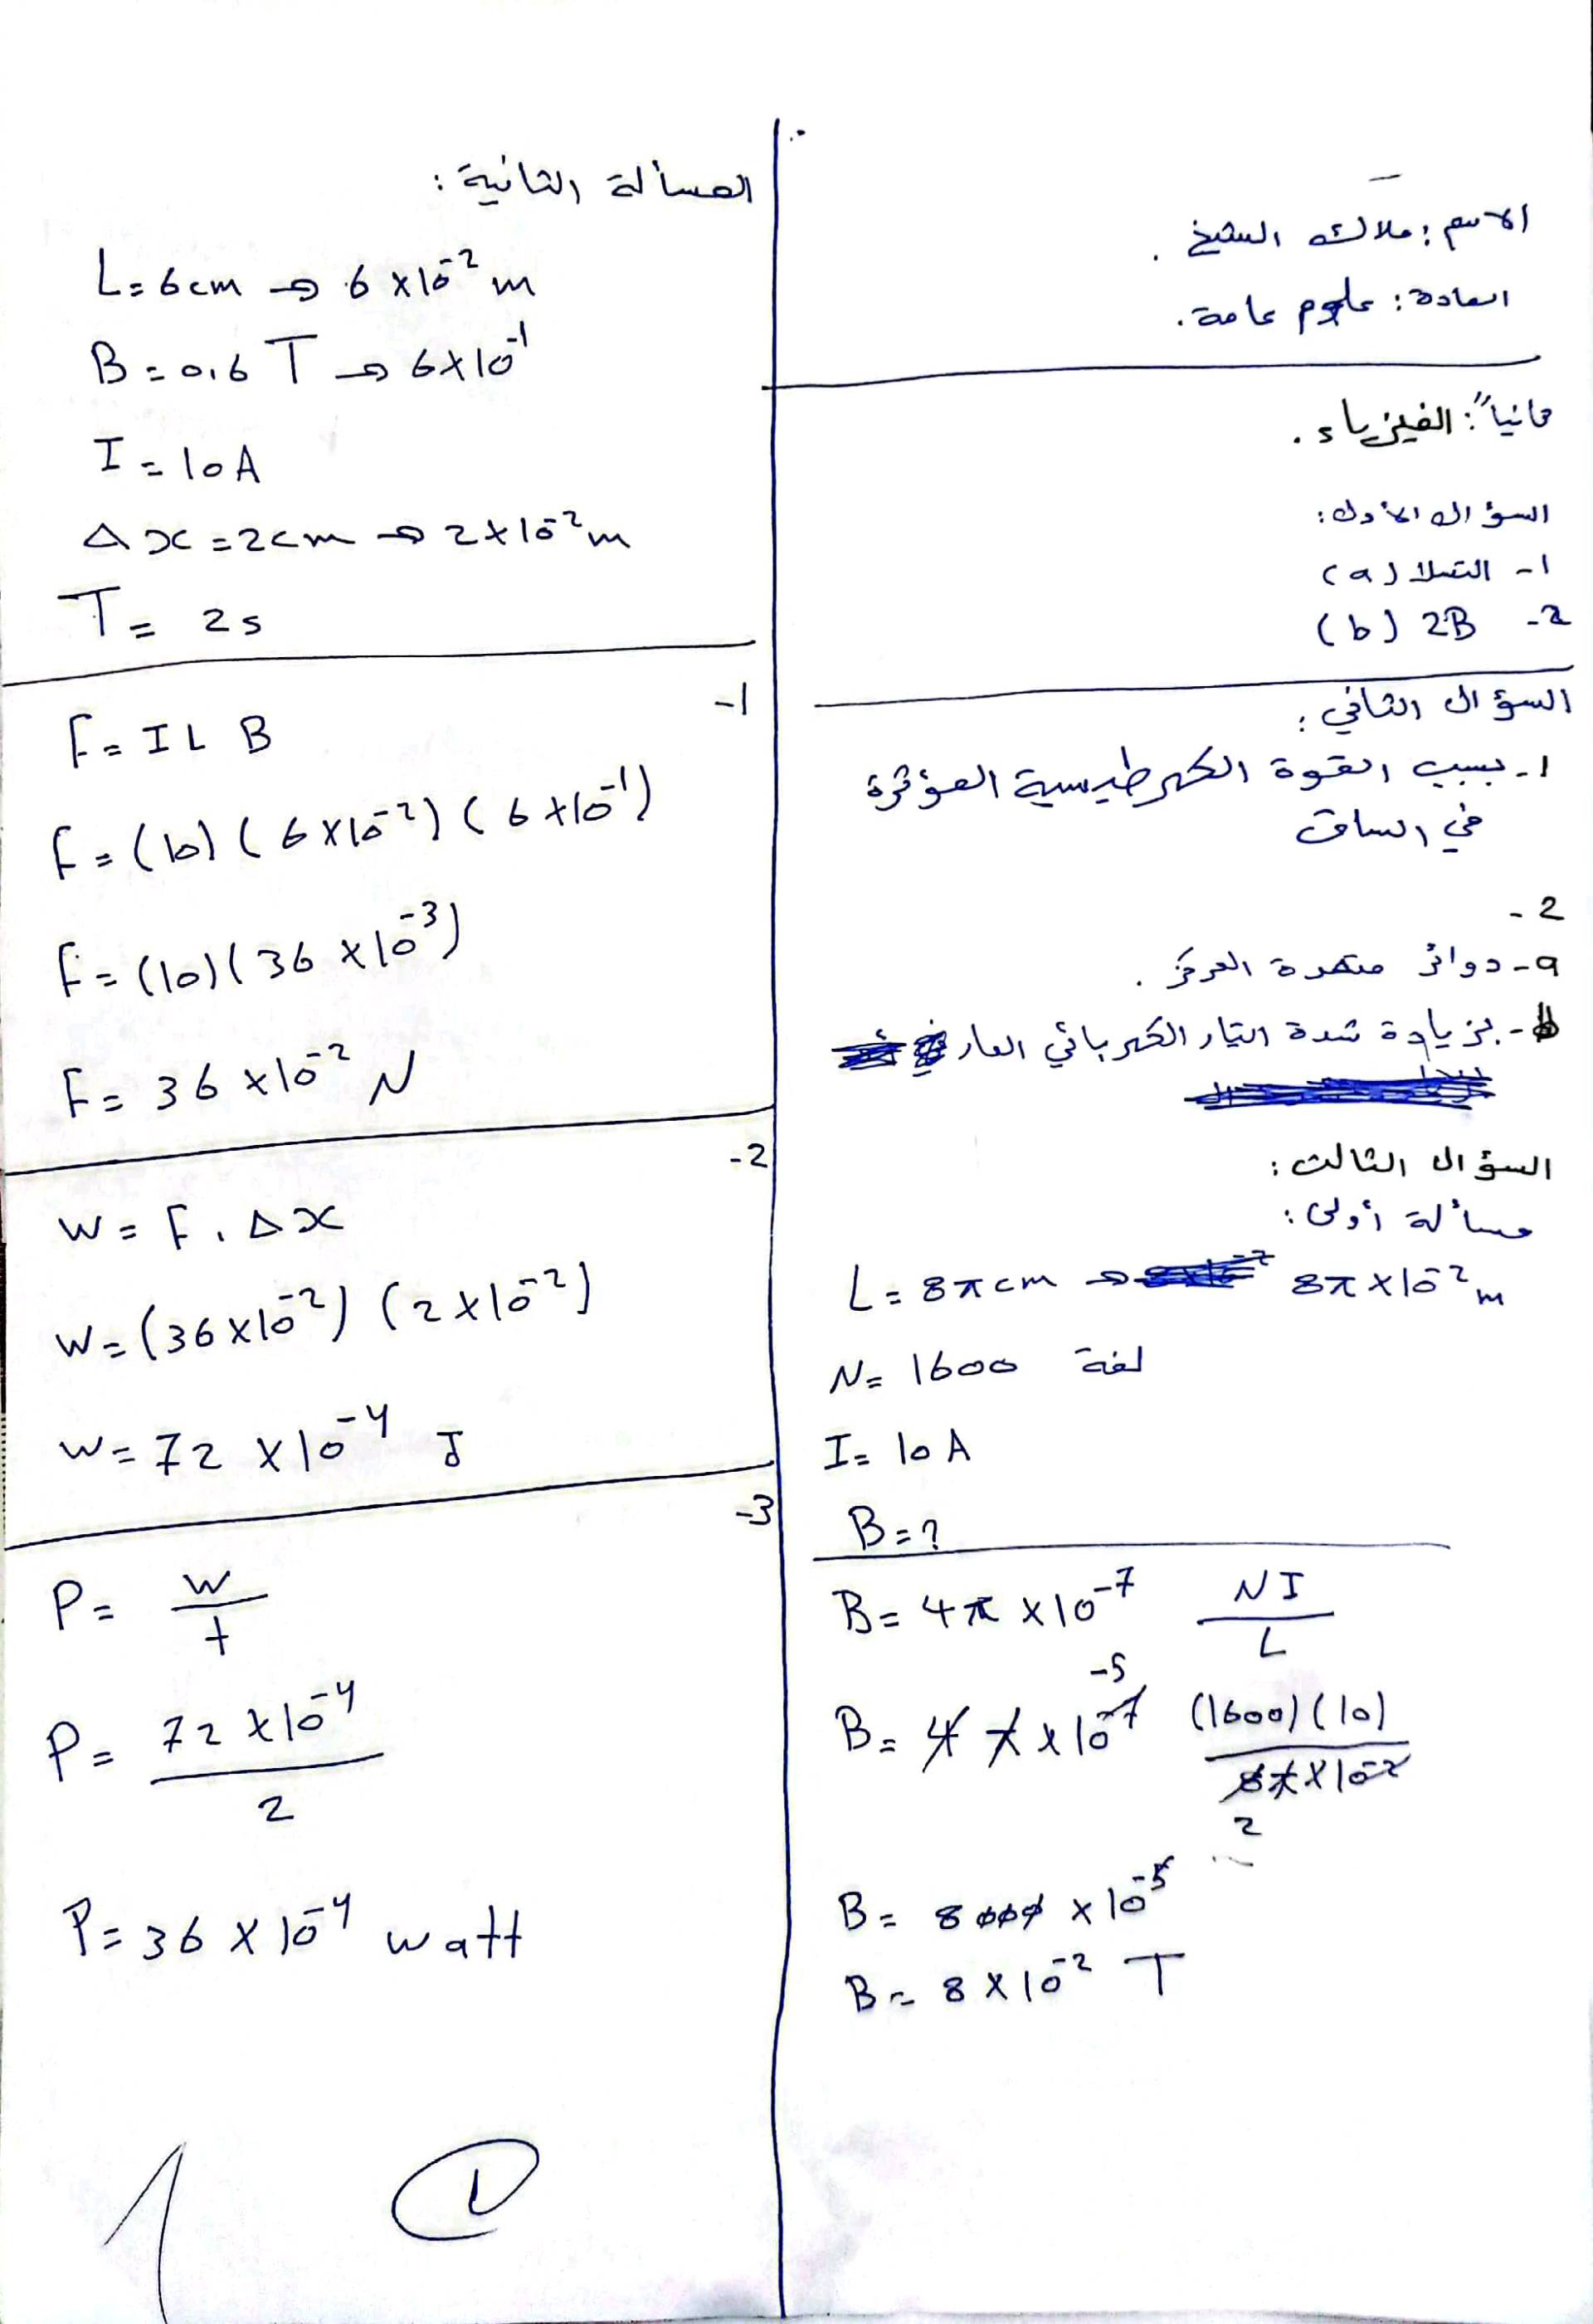 الاسم: ملاك الشيخ.
المادة: علوم عامة.
ثانياً: الفيزياء.
السؤال الأول:
1- التسلا (a)
2- 2B (b)
السؤال الثاني:
1- بسبب القوة الكهرطيسية المؤثرة
في الساق
2-
a- دوائر متحدة المركز.
b- بزيادة شدة التيار الكهربائي المار
السؤال الثالث:
مسألة أولى:
L = 8π cm → 8π × 10⁻² m
N = 1600 لفة
I = 10 A
B = ?
B = 4π × 10⁻⁷ NI / L
B = 4π × 10⁻⁷ (1600)(10) / 8π × 10⁻²
-5
2
B = 8000 × 10⁻⁵
B = 8 × 10⁻² T
المسألة الثانية:
L = 6 cm → 6 × 10⁻² m
B = 0,6 T → 6 × 10⁻¹
I = 10 A
Δx = 2 cm → 2 × 10⁻² m
T = 2 s
1-
F = I L B
F = (10) (6 × 10⁻²) (6 × 10⁻¹)
F = (10) (36 × 10⁻³)
F = 36 × 10⁻² N
2-
W = F . Δx
W = (36 × 10⁻²) (2 × 10⁻²)
W = 72 × 10⁻⁴ J
3-
P = W / t
P = 72 × 10⁻⁴ / 2
P = 36 × 10⁻⁴ watt